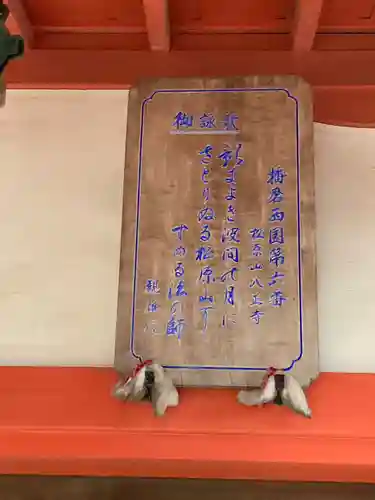 御詠歌
播磨西国第六番
松原山八正寺
きよき波間の月に
さとりぬる松原山
すめる法の師